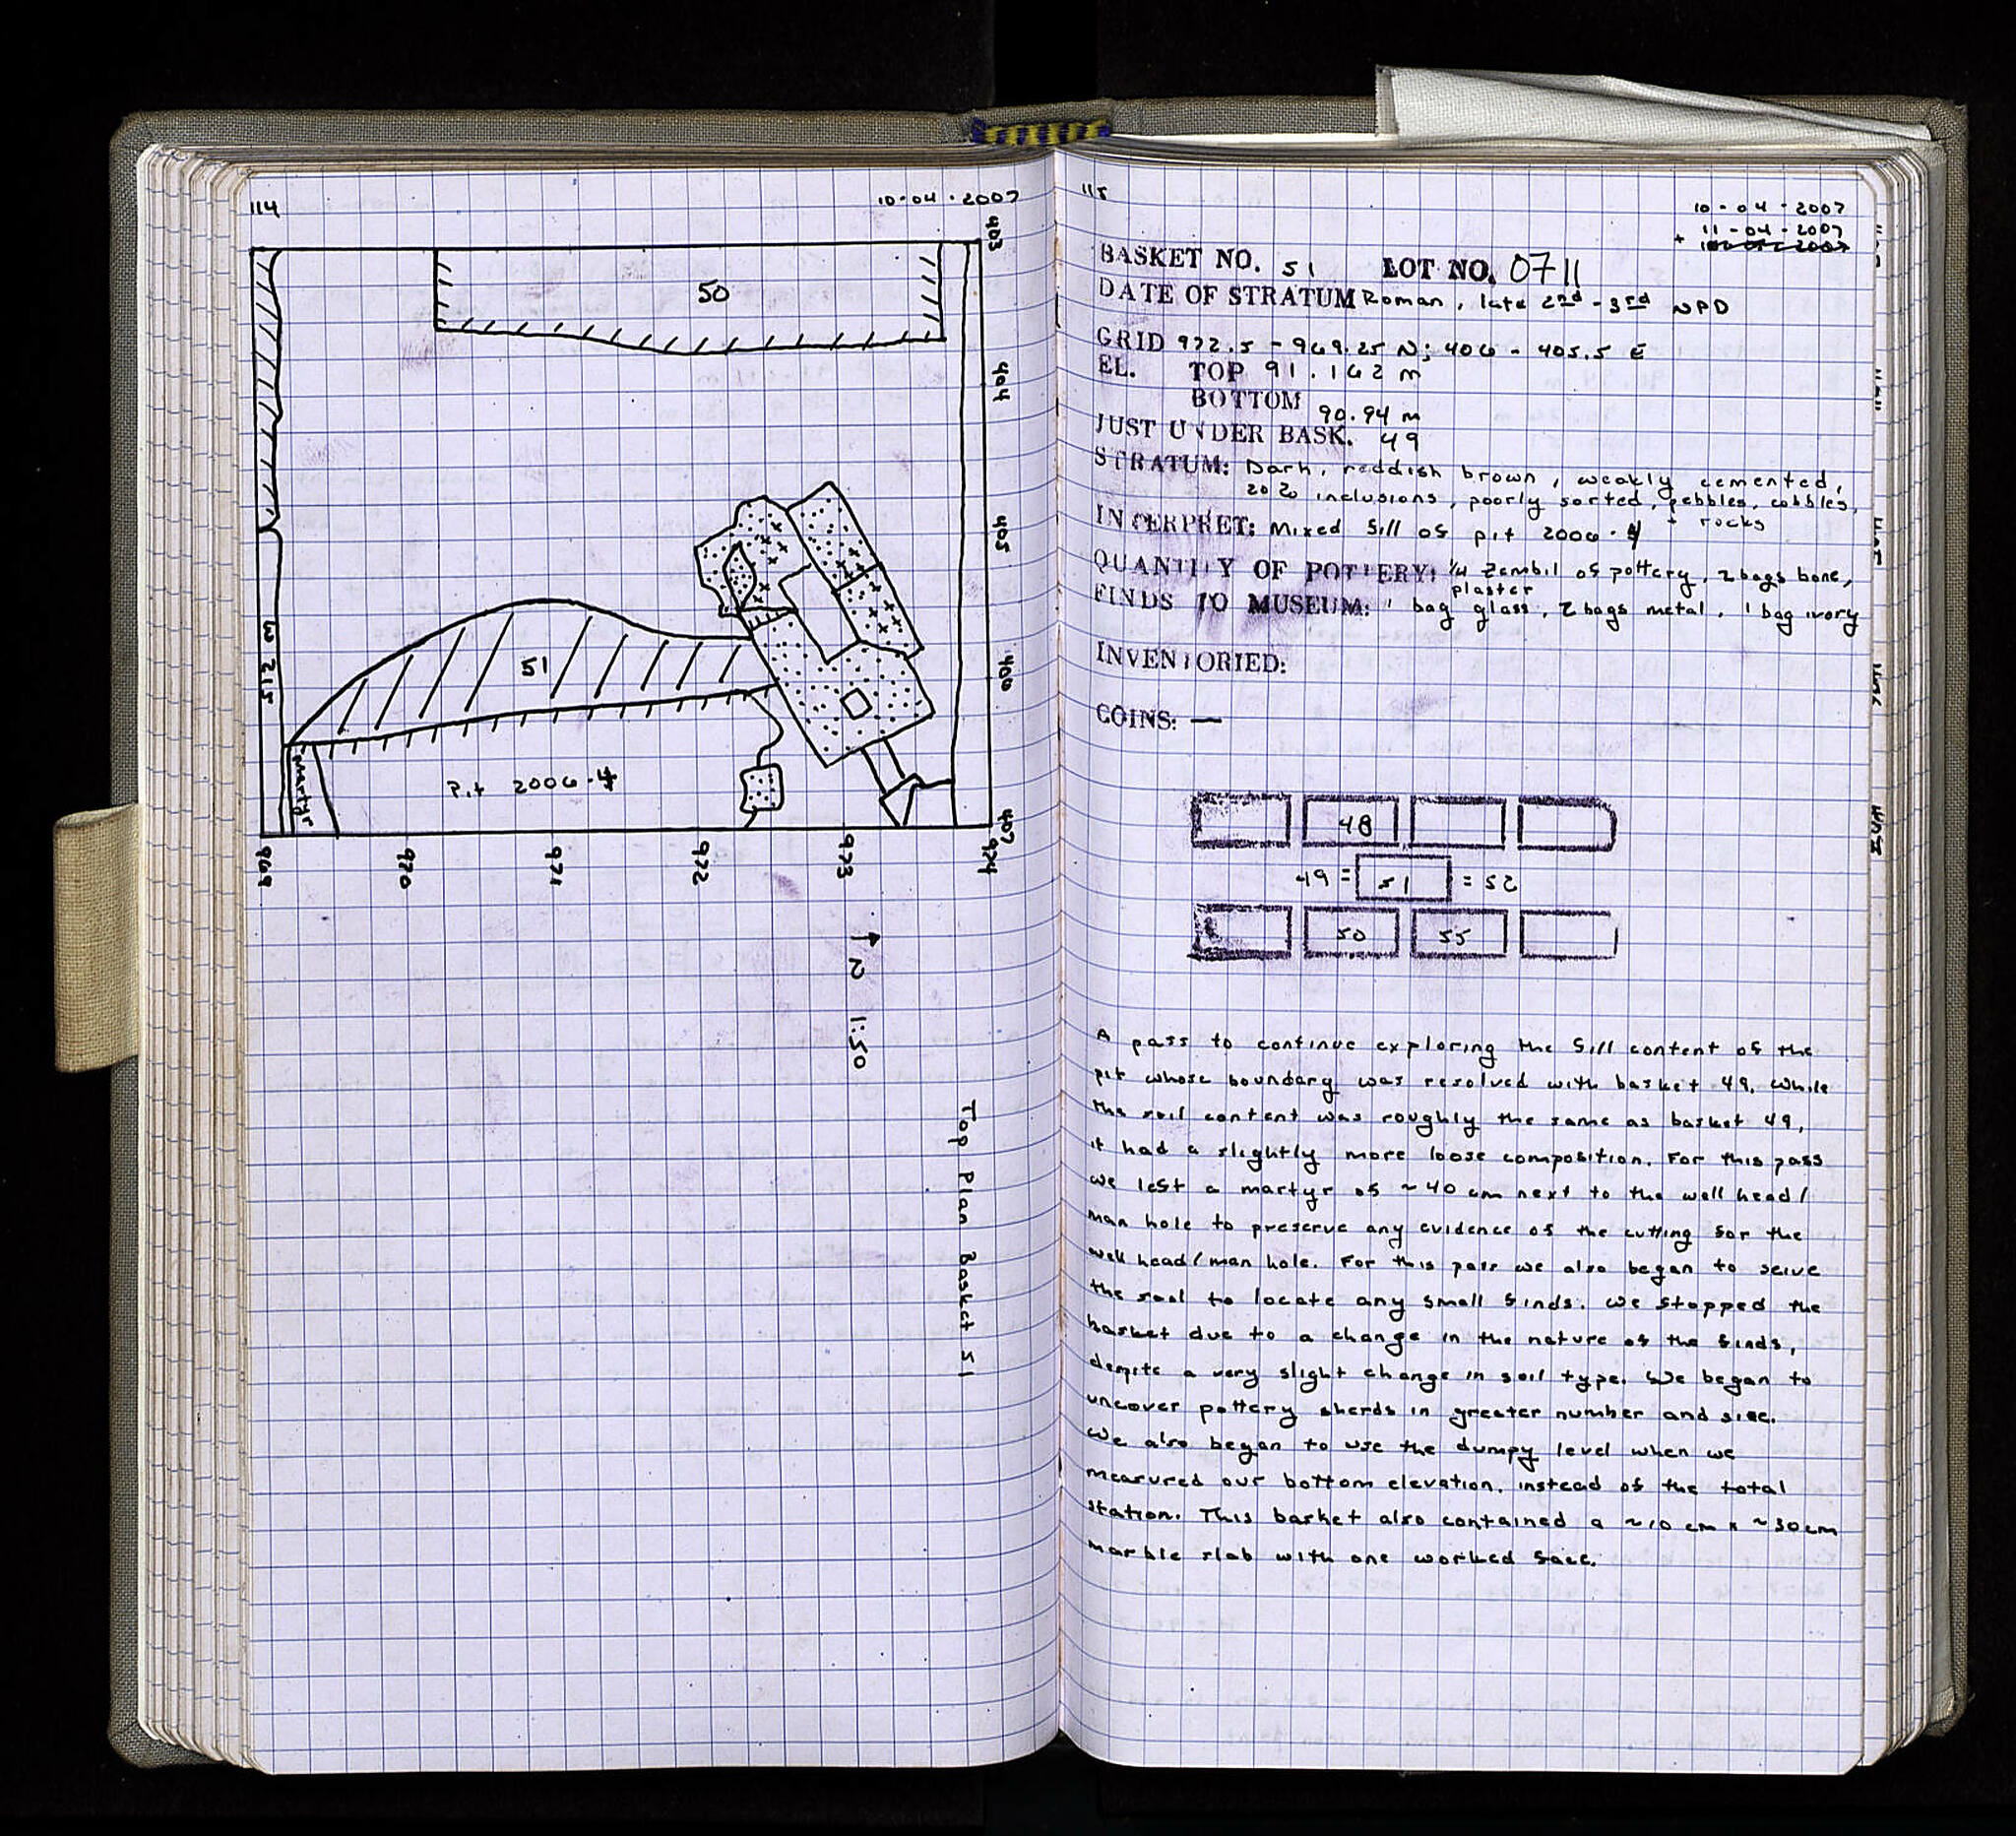 114
10-04-2007
403
50
404
405
W 215
51
406
martyr
Pit 2006-4
407
969
970
971
972
973
974
N 1:50
Top Plan Basket 51
115
10-04-2007
+ 11-04-2007
BASKET NO. 51 LOT NO. 0711
DATE OF STRATUM Roman, late 2nd - 3rd NPD
GRID 972.5 - 969.25 N; 406 - 405.5 E
EL. TOP 91.162 m
BOTTOM 90.94 m
JUST UNDER BASK. 49
STRATUM: Dark, reddish brown, weakly cemented,
20% inclusions, poorly sorted, pebbles, cobbles,
+ rocks
INTERPRET: Mixed fill of pit 2006-4
QUANTITY OF POTTERY: 1/4 Zembil of pottery, 2 bags bone,
plaster
FINDS TO MUSEUM: 1 bag glass, 2 bags metal, 1 bag ivory
INVENTORIED:
COINS: —
48
49 = 51 = 52
50 55
A pass to continue exploring the fill content of the
pit whose boundary was resolved with basket 49. While
the soil content was roughly the same as basket 49,
it had a slightly more loose composition. For this pass
we left a martyr of ~40 cm next to the well head/
man hole to preserve any evidence of the cutting for the
well head/man hole. For this pass we also began to seive
the soil to locate any small finds. We stopped the
basket due to a change in the nature of the finds,
despite a very slight change in soil type. We began to
uncover pottery sherds in greater number and size.
We also began to use the dumpy level when we
measured our bottom elevation, instead of the total
station. This basket also contained a ~10 cm x ~30 cm
marble slab with one worked face.